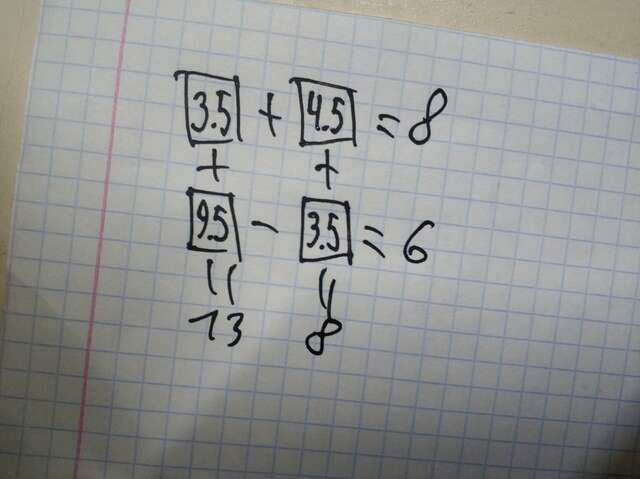 3.5 + 4.5 = 8
+ +
9.5 - 3.5 = 6
= =
13 8